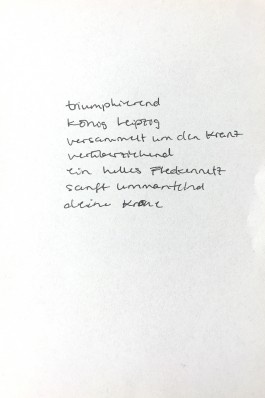 triumphierend
König Leipzig
versammelt um den Kranz
ein helles Fleckennetz
sanft ummantelnd
deine Krone